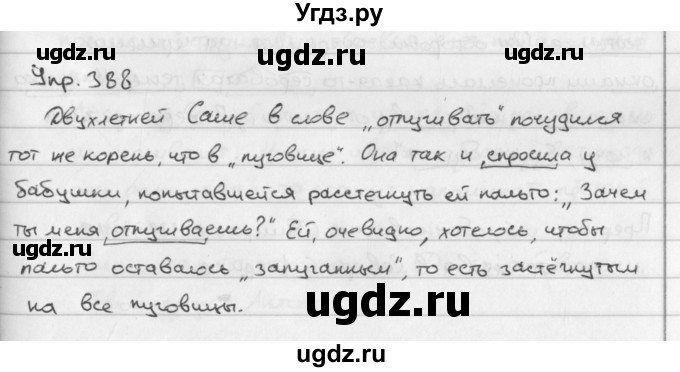 Угдз.ру
ugdz.ru ugdz.ru
ugdz.ru
Упр. 388
Двухлетней Саше в слове „отпугивать" почудился
тот же корень, что в „пуговице". Она так и спросила у
бабушки, попытавшейся расстегнуть ей пальто: „Зачем
ты меня отпугиваешь?" Ей, очевидно, хотелось, чтобы
пальто оставалось „запуганным", то есть застёгнутым
на все пуговицы.
ugdz.ru
ugdz.ru ugdz.ru
ugdz.ru
ugdz.ru